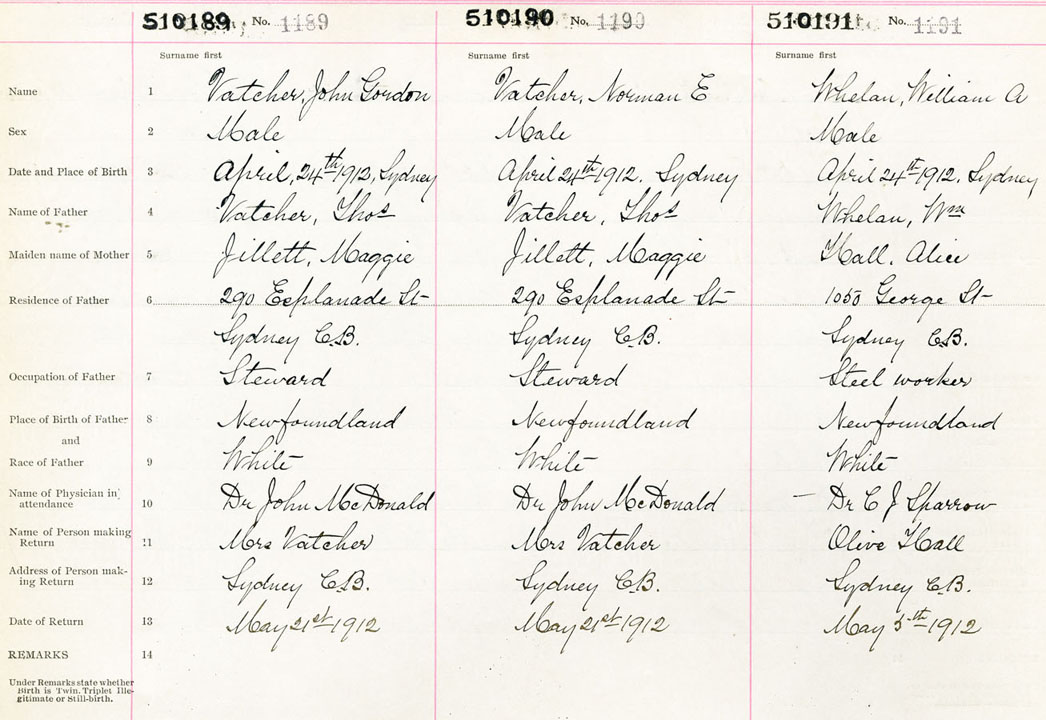 510189 No. 1189 510190 No. 1190 510191 No. 1191
Surname first Surname first Surname first
Name 1 Vatcher, John Gordon Vatcher, Norman E Whelan, William A
Sex 2 Male Male Male
Date and Place of Birth 3 April, 24th 1912, Sydney April 24th 1912. Sydney April 24th 1912. Sydney
Name of Father 4 Vatcher, Thos Vatcher, Thos Whelan, Wm
Maiden name of Mother 5 Jillett, Maggie Jillett, Maggie Hall. Alice
Residence of Father 6 290 Esplanade St 290 Esplanade St 1050 George St
Sydney C.B. Sydney C.B. Sydney C.B.
Occupation of Father 7 Steward Steward Steel worker
Place of Birth of Father 8 Newfoundland Newfoundland Newfoundland
and
Race of Father 9 White White White
Name of Physician in
attendance 10 Dr John McDonald Dr John McDonald – Dr C J Sparrow
Name of Person making
Return 11 Mrs Vatcher Mrs Vatcher Olive Hall
Address of Person mak-
ing Return 12 Sydney C.B. Sydney C.B. Sydney C.B.
Date of Return 13 May 21st 1912 May 21st 1912 May 5th 1912
REMARKS 14
Under Remarks state whether
Birth is Twin, Triplet Ille-
gitimate or Still-birth.